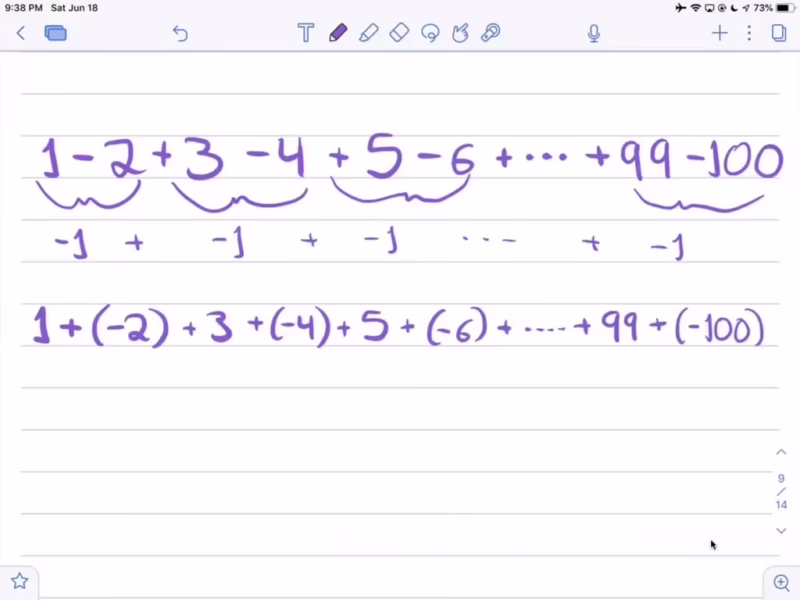 9:38 PM Sat Jun 18 73%
T
1 - 2 + 3 - 4 + 5 - 6 + ... + 99 - 100
-1 + -1 + -1 ... + -1
1 + (-2) + 3 + (-4) + 5 + (-6) + .... + 99 + (-100)
9
/
14